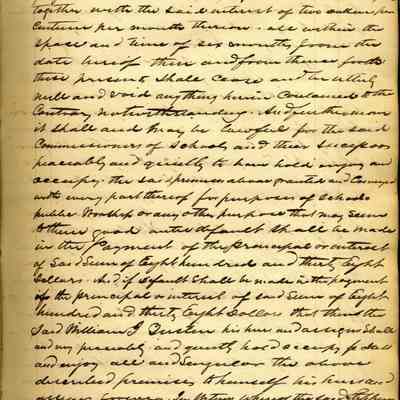 together with the said interest of two and one per
Centum per month thereon all within the
space and time of six months from the
date hereof then and from thence forth
these presents shall cease and be utterly
null and void anything herein contained to the
Contrary notwithstanding. And furthermore
it shall and may be lawful for the said
Commissioners of Schools and their successors
peaceably and quietly to have hold enjoy and
occupy the said premises above granted and conveyed
with every part thereof for purposes of schools
public Worship or any other purpose that may seem
to them good until default shall be made
in the Payment of the Principal or interest
of Said Sum of Eight hundred and thirty Eight
Dollars. And if default shall be made in the payment
of the principal or interest of said Sum of Eight
hundred and thirty Eight Dollars that then the
Said William J his heirs and assigns shall
and may peaceably and quietly hold occupy
and enjoy all and Singular the above
described premises to himself his heirs and
assigns forever. In Witness whereof the said